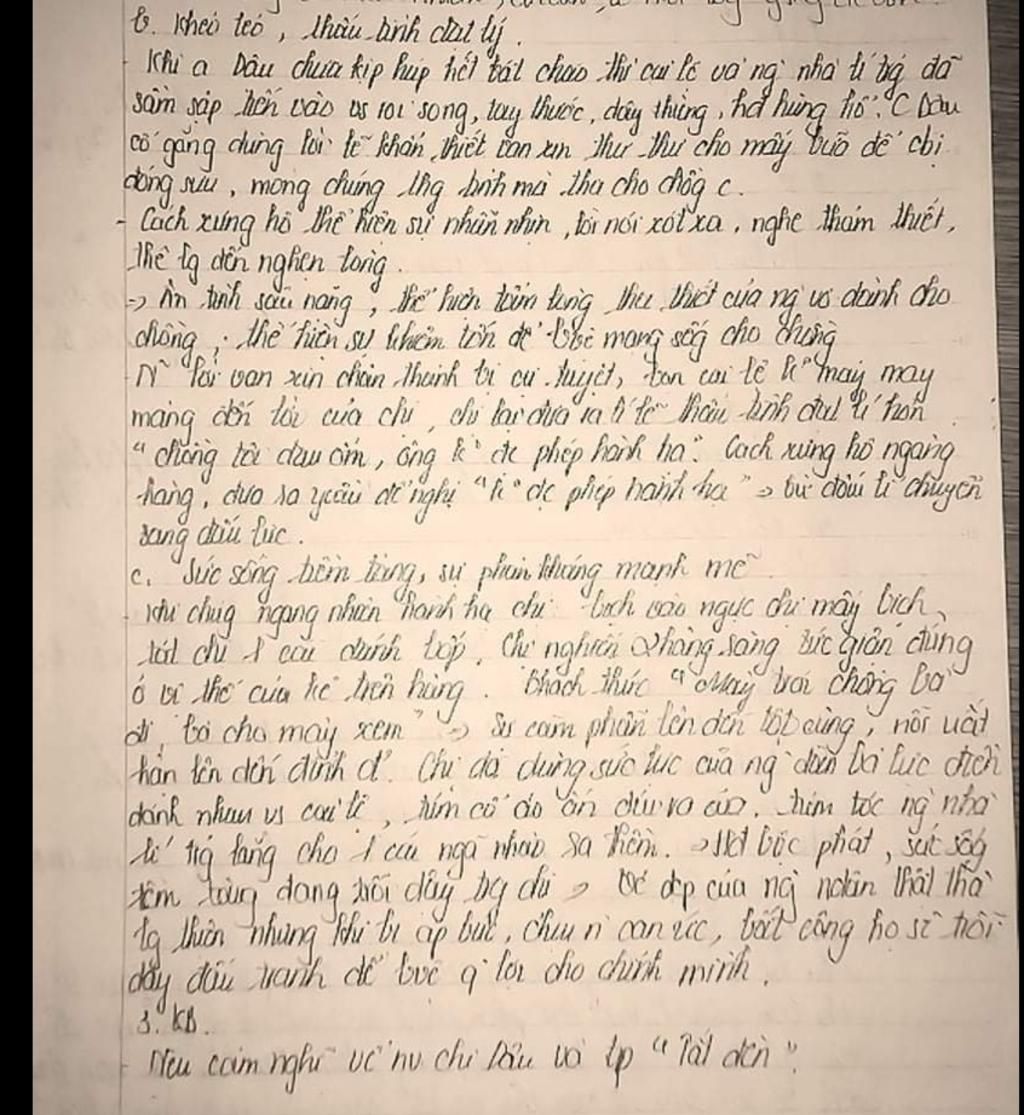 b. Khéo léo, thấu tình đạt lý.
- Khi a Dậu chưa kịp húp hết bát cháo thì cai lệ và ng nhà lí trg đã
sầm sập tiến vào vs roi song, tay thước, dây thừng, hơ hùng hổ. C Dậu
cố gắng dùng lời lẽ khẩn thiết van xin thư thư cho mấy bữa để cbị
đóng sưu, mong chúng thg tình mà tha cho chồg c.
- Cách xưng hô thể hiện sự nhẫn nhịn, lời nói xót xa, nghe thảm thiết,
thê lg đến nghẹn lòng.
=> Ân tình sâu nặng, thể hiện tấm lòng tha thiết của ng vợ dành cho
chồng, thể hiện sự khiêm tốn để bvệ mạng sốg cho chồng
N~ lời van xin chân thành bị cự tuyệt, tên cai lệ k° mảy may
màng đến lời của chị, chị lại đưa ra lí lẽ thấu tình đạt lí hơn
"chồng tôi đau ốm, ông k° đc phép hành hạ". Cách xưng hô ngang
hàng, đưa ra yêu đề nghị "k° đc phép hành hạ" => từ đấu lí chuyển
sang đấu lực.
c. Sức sống tiềm tàng, sự phản kháng mạnh mẽ
- Khi chúg ngang nhiên hành hạ chị bịch vào ngực chị mấy bịch,
tát chị 1 cái đánh bốp. Chị nghiến 2 hàng răng tức giận đứng
ở vị thế của kẻ trên hàng. Thách thức "Mày trói chồng bà
đi, bà cho mày xem" => Sự căm phẫn lên đến tột cùng, nỗi uất
hận lên đến đỉnh đ. Chị đã dùng sức lực của ng đàn bà lực điền
đánh nhau vs cai lệ, túm cổ áo ấn dúi ra cửa. túm tóc ng nhà
lí trg lẳng cho 1 cái ngã nhào ra thềm. => Hđ bộc phát, sức sốg
tiềm tàng đang trỗi dậy trg chị => Vẻ đẹp của ng ndân thật thà
lg thiện nhưng khi bị áp bức, chịu n~ oan ức, bất công họ sẽ trỗi
dậy đấu tranh để bvệ q lợi cho chính mình.
3. KB.
- Nêu cảm nghĩ về nv chị Dậu và tp "Tắt đèn".